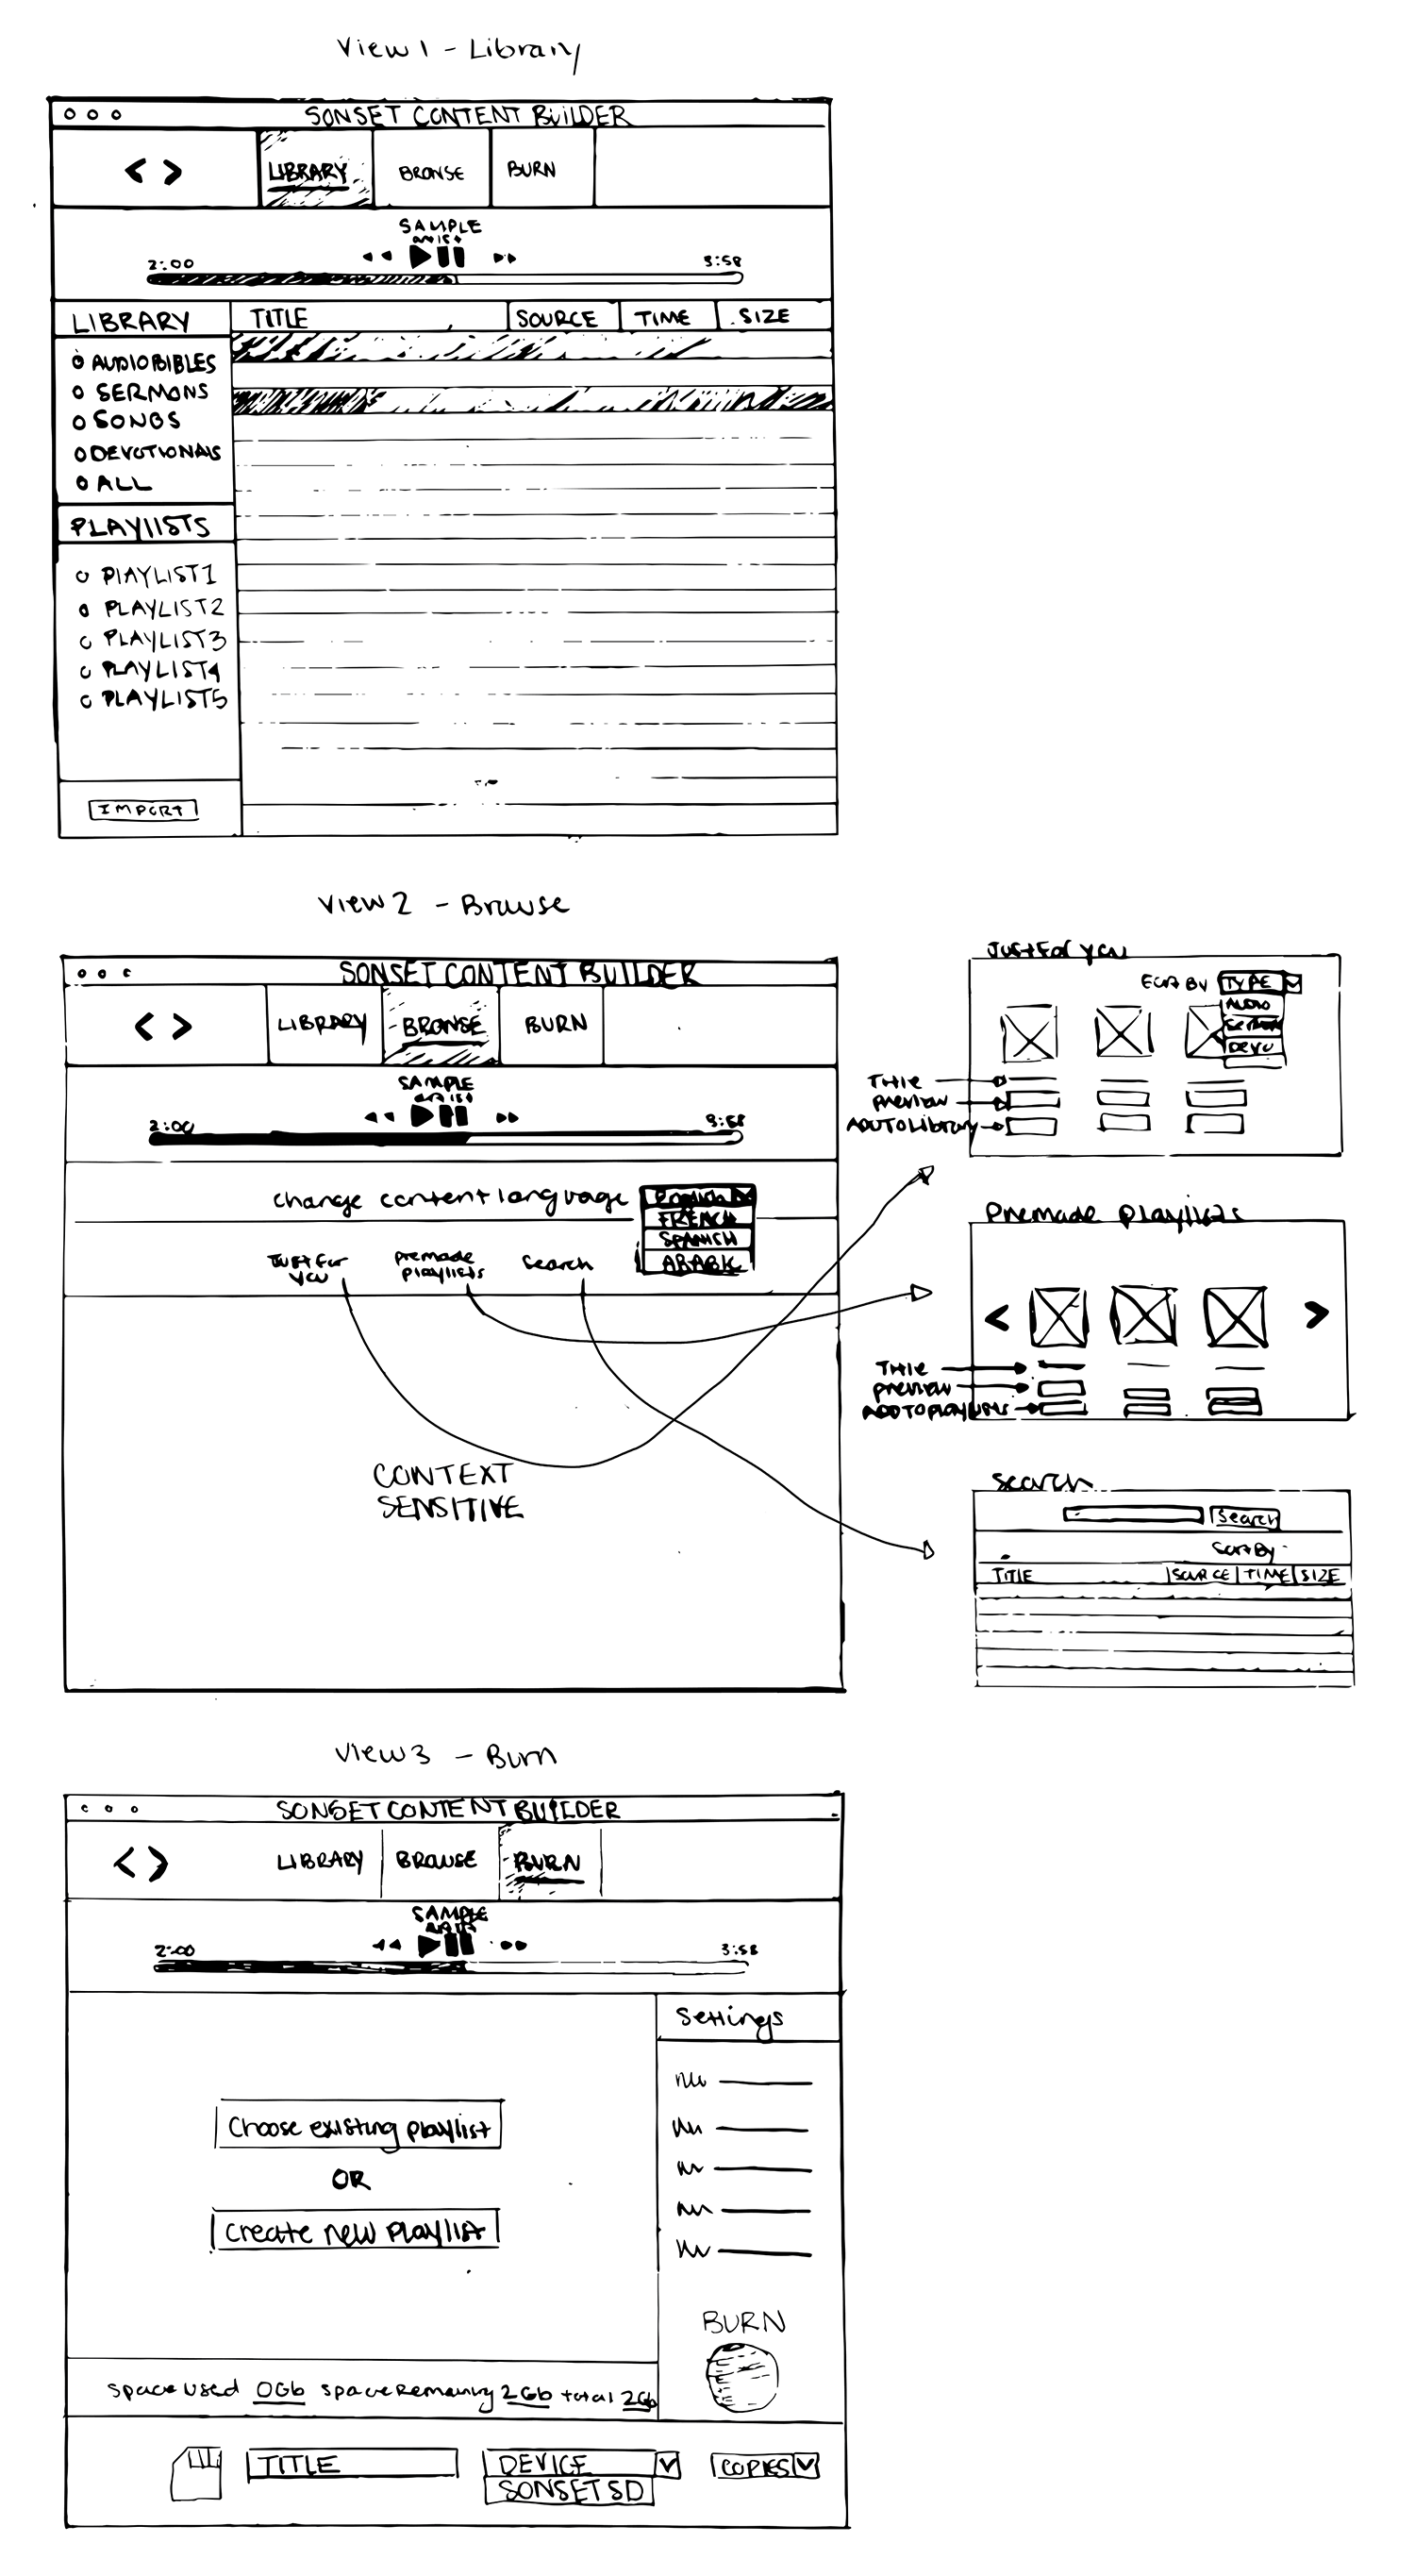 View 1 - Library
SONSET CONTENT BUILDER
< > LIBRARY BROWSE BURN
SAMPLE
artist
2:00 3:58
LIBRARY TITLE SOURCE TIME SIZE
AUDIOBIBLES
SERMONS
SONGS
DEVOTIONALS
ALL
PLAYLISTS
PLAYLIST1
PLAYLIST2
PLAYLIST3
PLAYLIST4
PLAYLIST5
IMPORT
View 2 - Browse
SONSET CONTENT BUILDER
< > LIBRARY BROWSE BURN
SAMPLE
artist
2:00 3:58
change content language English
FRENCH
SPANISH
ARABIC
Just for
you
premade
playlists
search
CONTEXT
SENSITIVE
Just For you
BY TYPE
AUDIO
SERMON
DEVO
Title
preview
ADD TO Library
Premade playlists
< >
Title
preview
ADD TO playlists
Search
Search
Sort By
TITLE SOURCE TIME SIZE
View 3 - Burn
SONSET CONTENT BUILDER
< > LIBRARY BROWSE BURN
SAMPLE
artist
2:00 3:58
Settings
Choose existing playlist
OR
Create new playlist
BURN
Space used 0Gb space Remaining 2Gb total 2Gb
TITLE DEVICE COPIES
SONSET SD